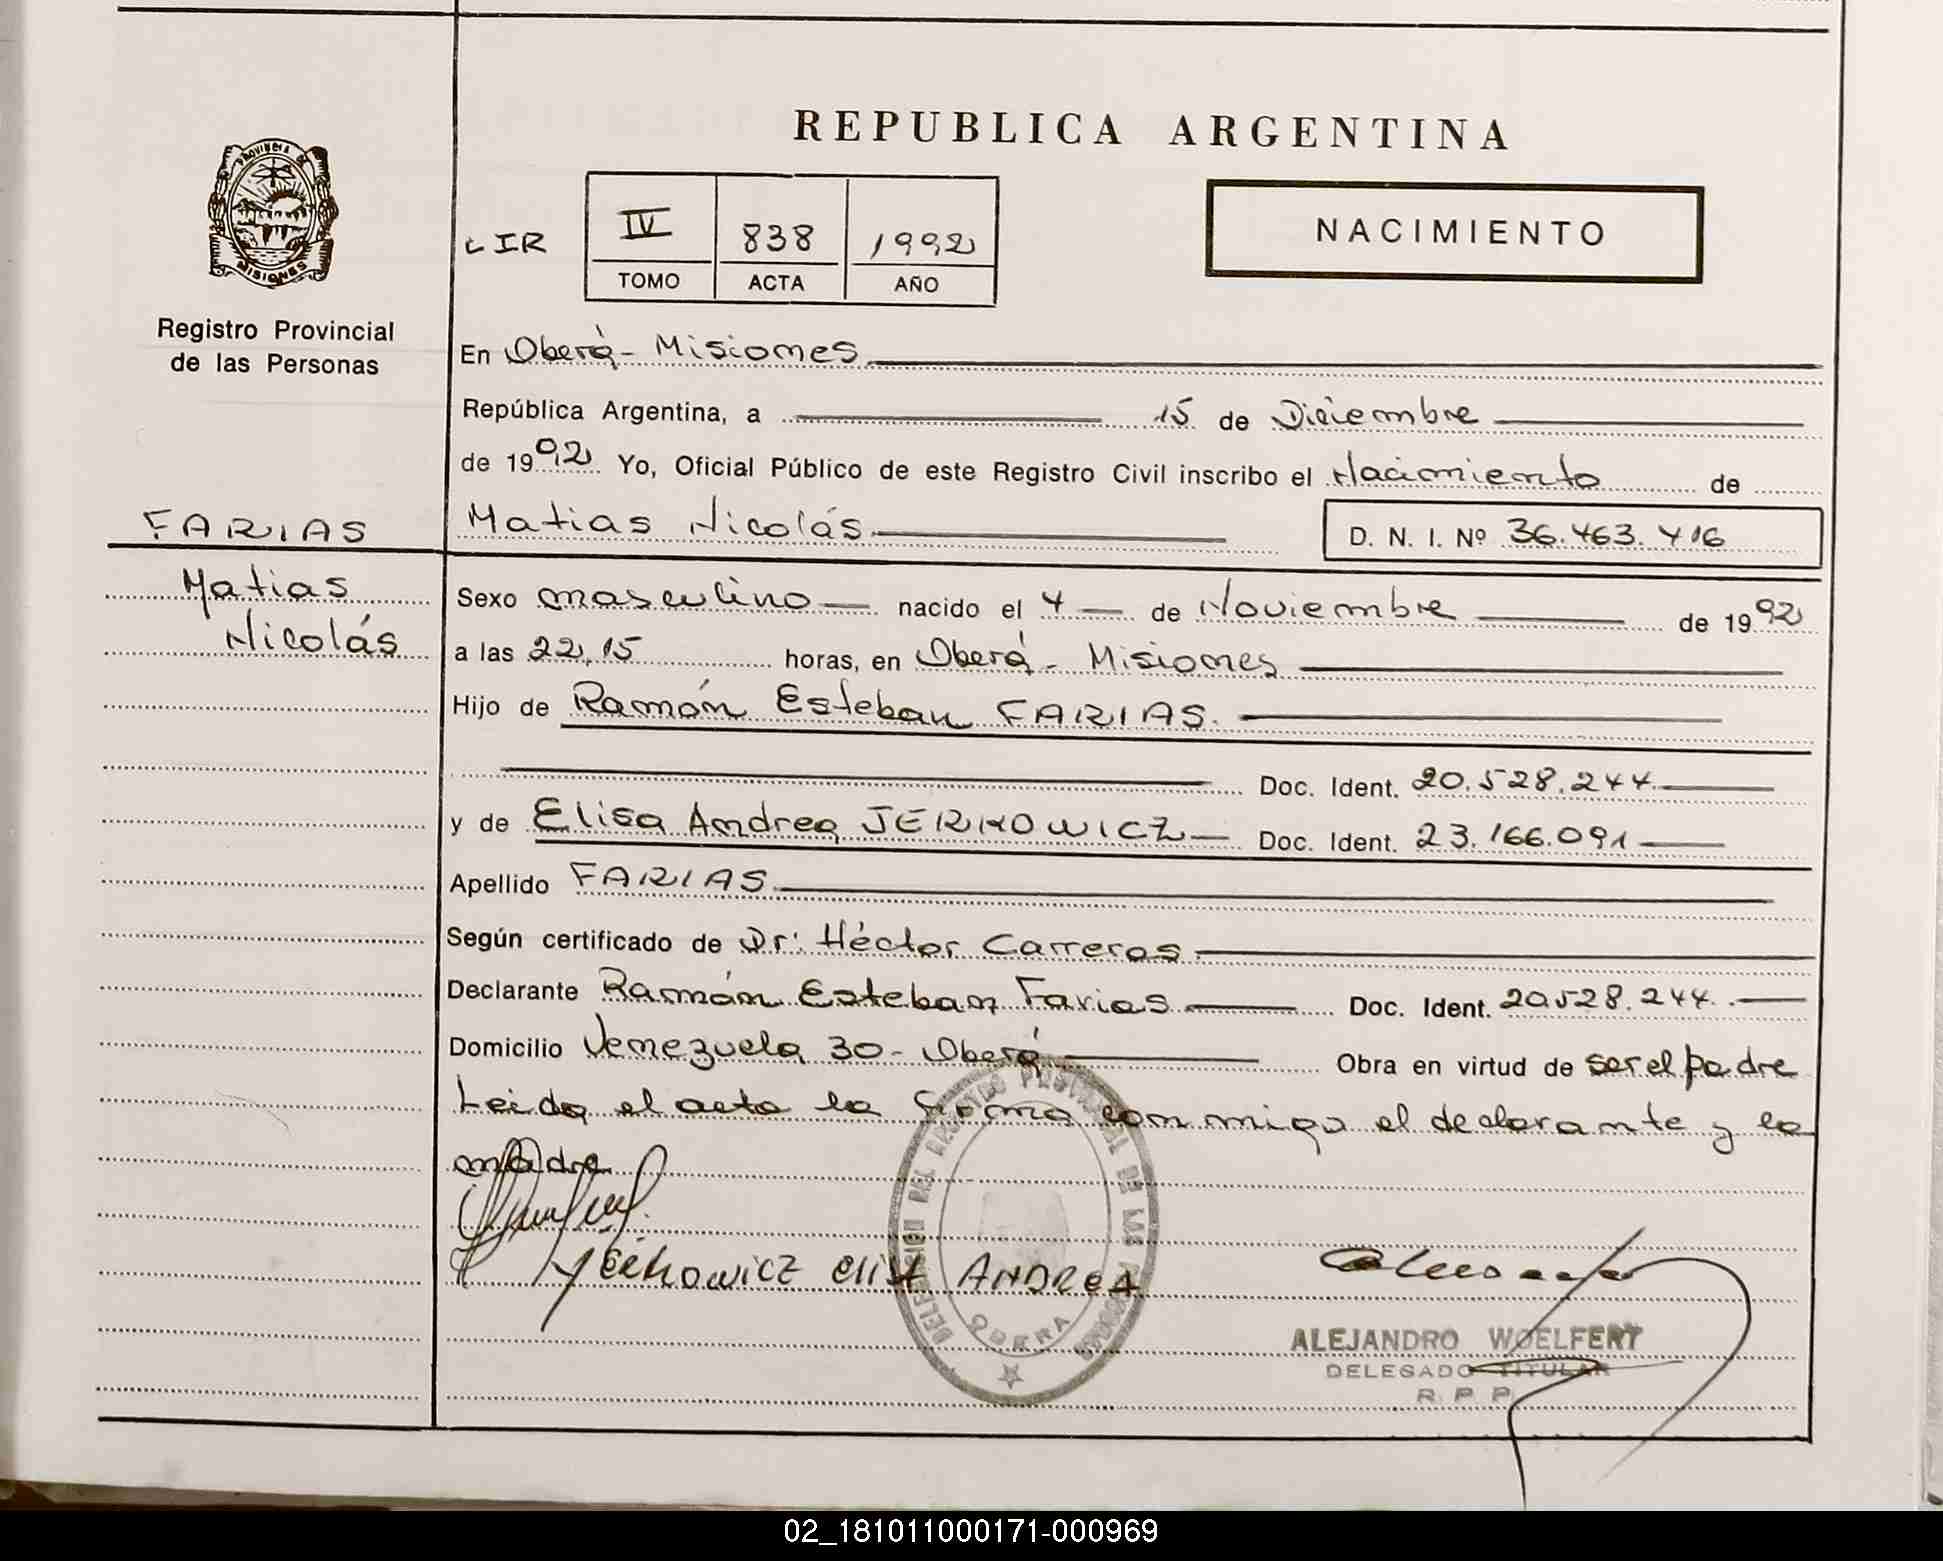 REPUBLICA ARGENTINA
PROVINCIA DE
MISIONES
Registro Provincial
de las Personas
CIR
IV 838 1992
TOMO ACTA AÑO
NACIMIENTO
En Oberá - Misiones
República Argentina, a 15 de Diciembre
de 1992 Yo, Oficial Público de este Registro Civil inscribo el Nacimiento de
FARIAS
Matias Nicolás D. N. I. Nº 36.463.416
Matias
Nicolás
Sexo masculino nacido el 4 de Noviembre de 1992
a las 22,15 horas, en Oberá - Misiones
Hijo de Ramón Esteban FARIAS.
Doc. Ident. 20.528.244
y de Elisa Andrea JERKOWICZ Doc. Ident. 23.166.091
Apellido FARIAS
Según certificado de Dr: Héctor Carreras
Declarante Ramón Esteban Farias Doc. Ident. 20.528.244.
Domicilio Venezuela 30 - Oberá Obra en virtud de ser el padre
Leida el acta la firma conmigo el declarante y la
madre
DELEGACION DEL REGISTRO PROVINCIAL DE LAS PERSONAS
OBERA
Yerkowicz Elisa ANDREA
ALEJANDRO WOELFERT
DELEGADO TITULAR
R. P. P.
02_181011000171-000969